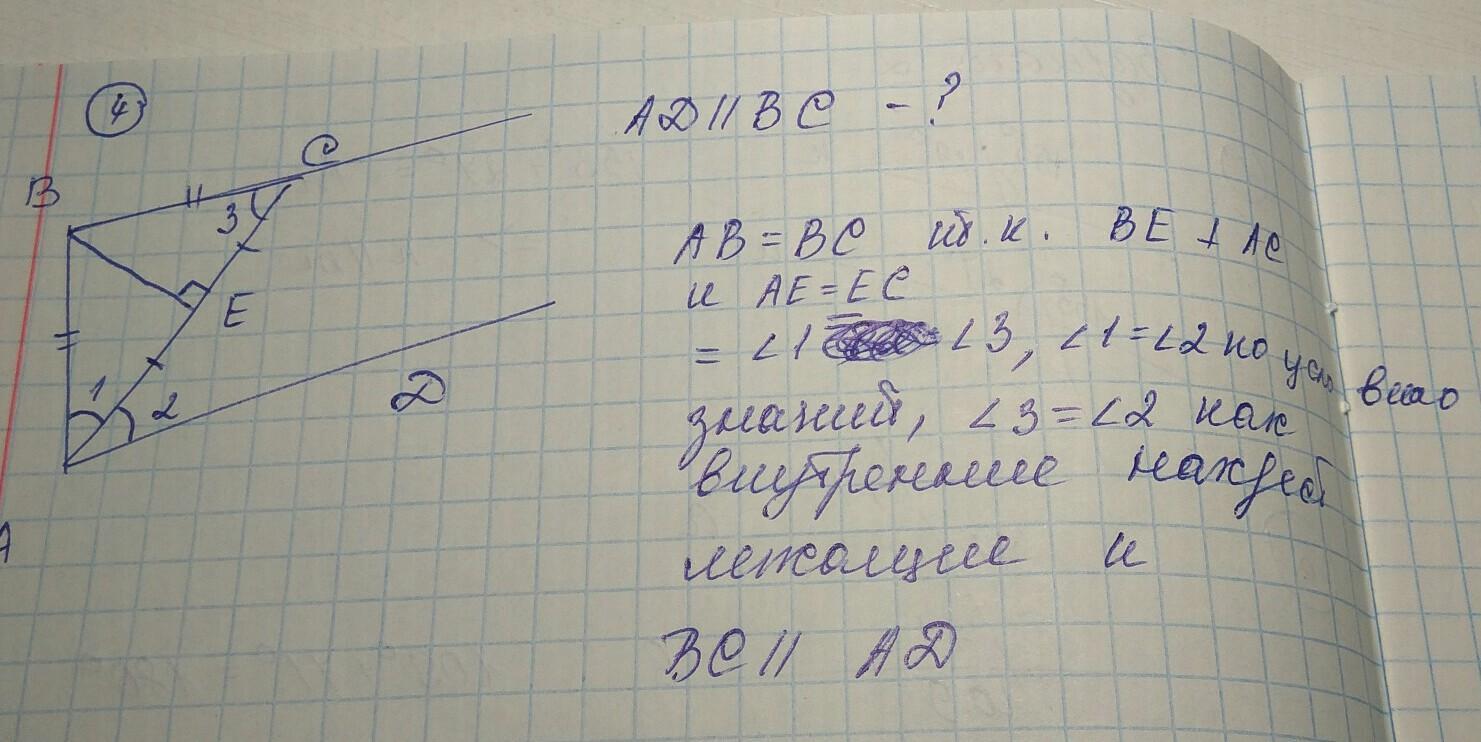 4
AD || BC - ?
B
C
3
E
1
2
D
A
AB = BC т.к. BE ⊥ AC
и AE = EC
= ∠1 = ∠3, ∠1 = ∠2 по условию
значит, ∠3 = ∠2 как
внутренние накрест
лежащие и
BC || AD